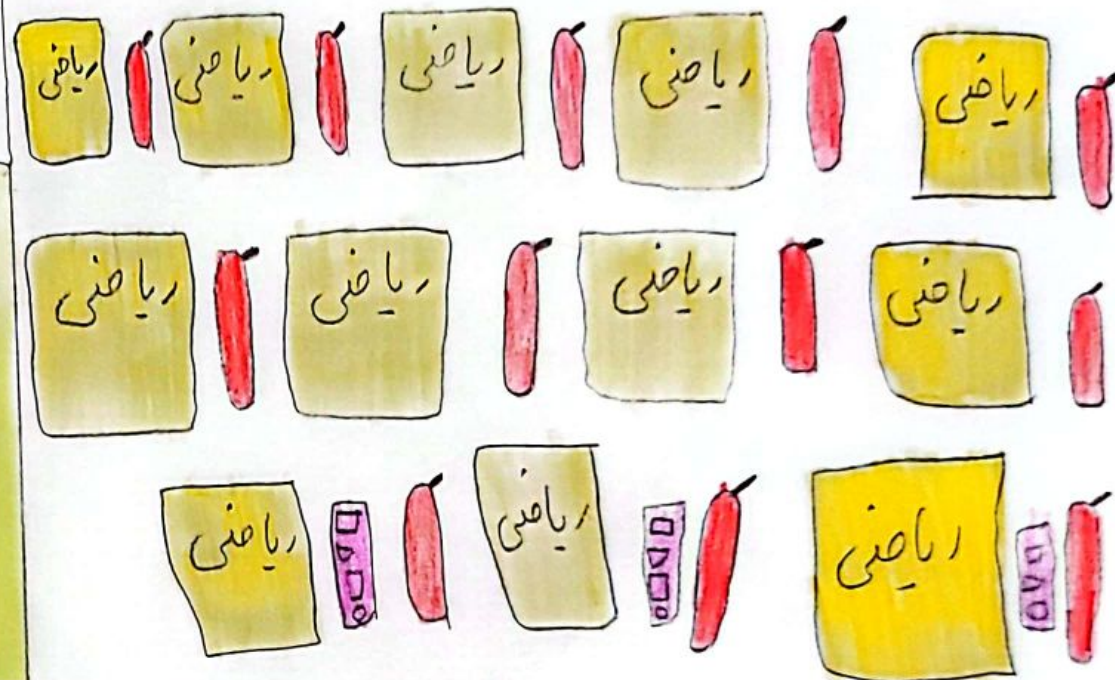 ریاضی ریاضی ریاضی ریاضی ریاضی
ریاضی ریاضی ریاضی ریاضی
ریاضی ریاضی ریاضی